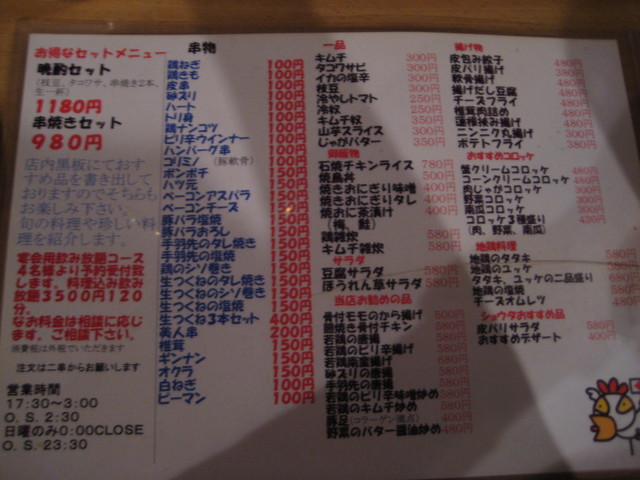 お得なセットメニュー
晩酌セット
(枝豆、タコワサ、串焼き2本、
生一杯)
1180円
串焼きセット
980円
店内黒板にておす
すめ品を書き出して
おりますのでそちらも
お楽しみ下さい。
旬の料理や珍しい料
理を紹介します。
宴会用飲み放題コース
4名様より予約受付致
します。料理込み飲み
放題3500円120
分。
なお料金は相談に応じ
ます。ご相談下さい。
消費税は外税でいただきます
注文は二串からお願いします
営業時間
17:30~3:00
O.S.2:30
日曜のみ0:00CLOSE
O.S-23:30
串物
鶏ねぎ 100円
鶏きも 100円
皮串 100円
砂ズリ 100円
ハート 100円
トリ身 100円
鶏ナンコツ 100円
ピリ辛ウインナー 100円
ハンバーグ串 100円
コリミノ (豚軟骨) 100円
ボンボチ 150円
ハツ元 150円
ベーコンアスパラ 150円
ベーコンチーズ 150円
豚バラ塩焼 150円
豚バラおろし 150円
手羽先のタレ焼き 150円
手羽先の塩焼 150円
鶏のシソ巻き 150円
生つくねのタレ焼き 150円
生つくねのシソ巻き 150円
生つくねの塩焼 150円
生つくね3本セット 400円
美人串 200円
椎茸 150円
ギンナン 150円
オクラ 150円
白ねぎ 100円
ピーマン 100円
一品
キムチ 300円
タコワサビ 300円
イカの塩辛 300円
枝豆 200円
冷やしトマト 250円
冷奴 250円
キムチ奴 350円
山芋スライス 300円
じゃがバター 300円
御飯物
石焼チキンライス 780円
焼鳥丼 500円
焼きおにぎり味噌 400円
焼きおにぎりタレ 400円
焼おに茶漬け 400円
(梅、鮭)
鶏雑炊 580円
キムチ雑炊 580円
サラダ
豆腐サラダ 580円
ほうれん草サラダ 580円
当店お勧めの品
骨付モモのから揚げ 500円
釜焼き骨付チキン 580円
若鶏の唐揚 580円
若鶏のピリ辛揚げ 580円
若鶏の南蛮揚げ 580円
砂ズリの唐揚 580円
手羽先の唐揚 580円
若鶏のピリ辛味噌炒め 580円
若鶏のキムチ炒め 580円
豚足(コラーゲン満点) 400円
野菜のバター醤油炒め 480円
揚げ物
皮包み餃子 480円
皮パリ揚げ 480円
軟骨揚げ 480円
揚げだし豆腐 480円
チーズフライ 480円
椎茸肉詰め 480円
蓮根挟み揚げ 480円
ニンニク丸揚げ 480円
ポテトフライ 380円
おすすめコロッケ
蟹クリームコロッケ 480円
コーンクリームコロッケ 480円
肉じゃがコロッケ 430円
野菜コロッケ 430円
南瓜コロッケ 430円
コロッケ3種盛り 430円
(肉、野菜、南瓜)
地鶏料理
地鶏のタタキ 580円
地鶏のユッケ 580円
タタキ、ユッケの二品盛り 680円
地鶏の塩焼 580円
チーズオムレツ 480円
ショウタおすすめ品
皮パリサラダ 580円
おすすめデザート 400円